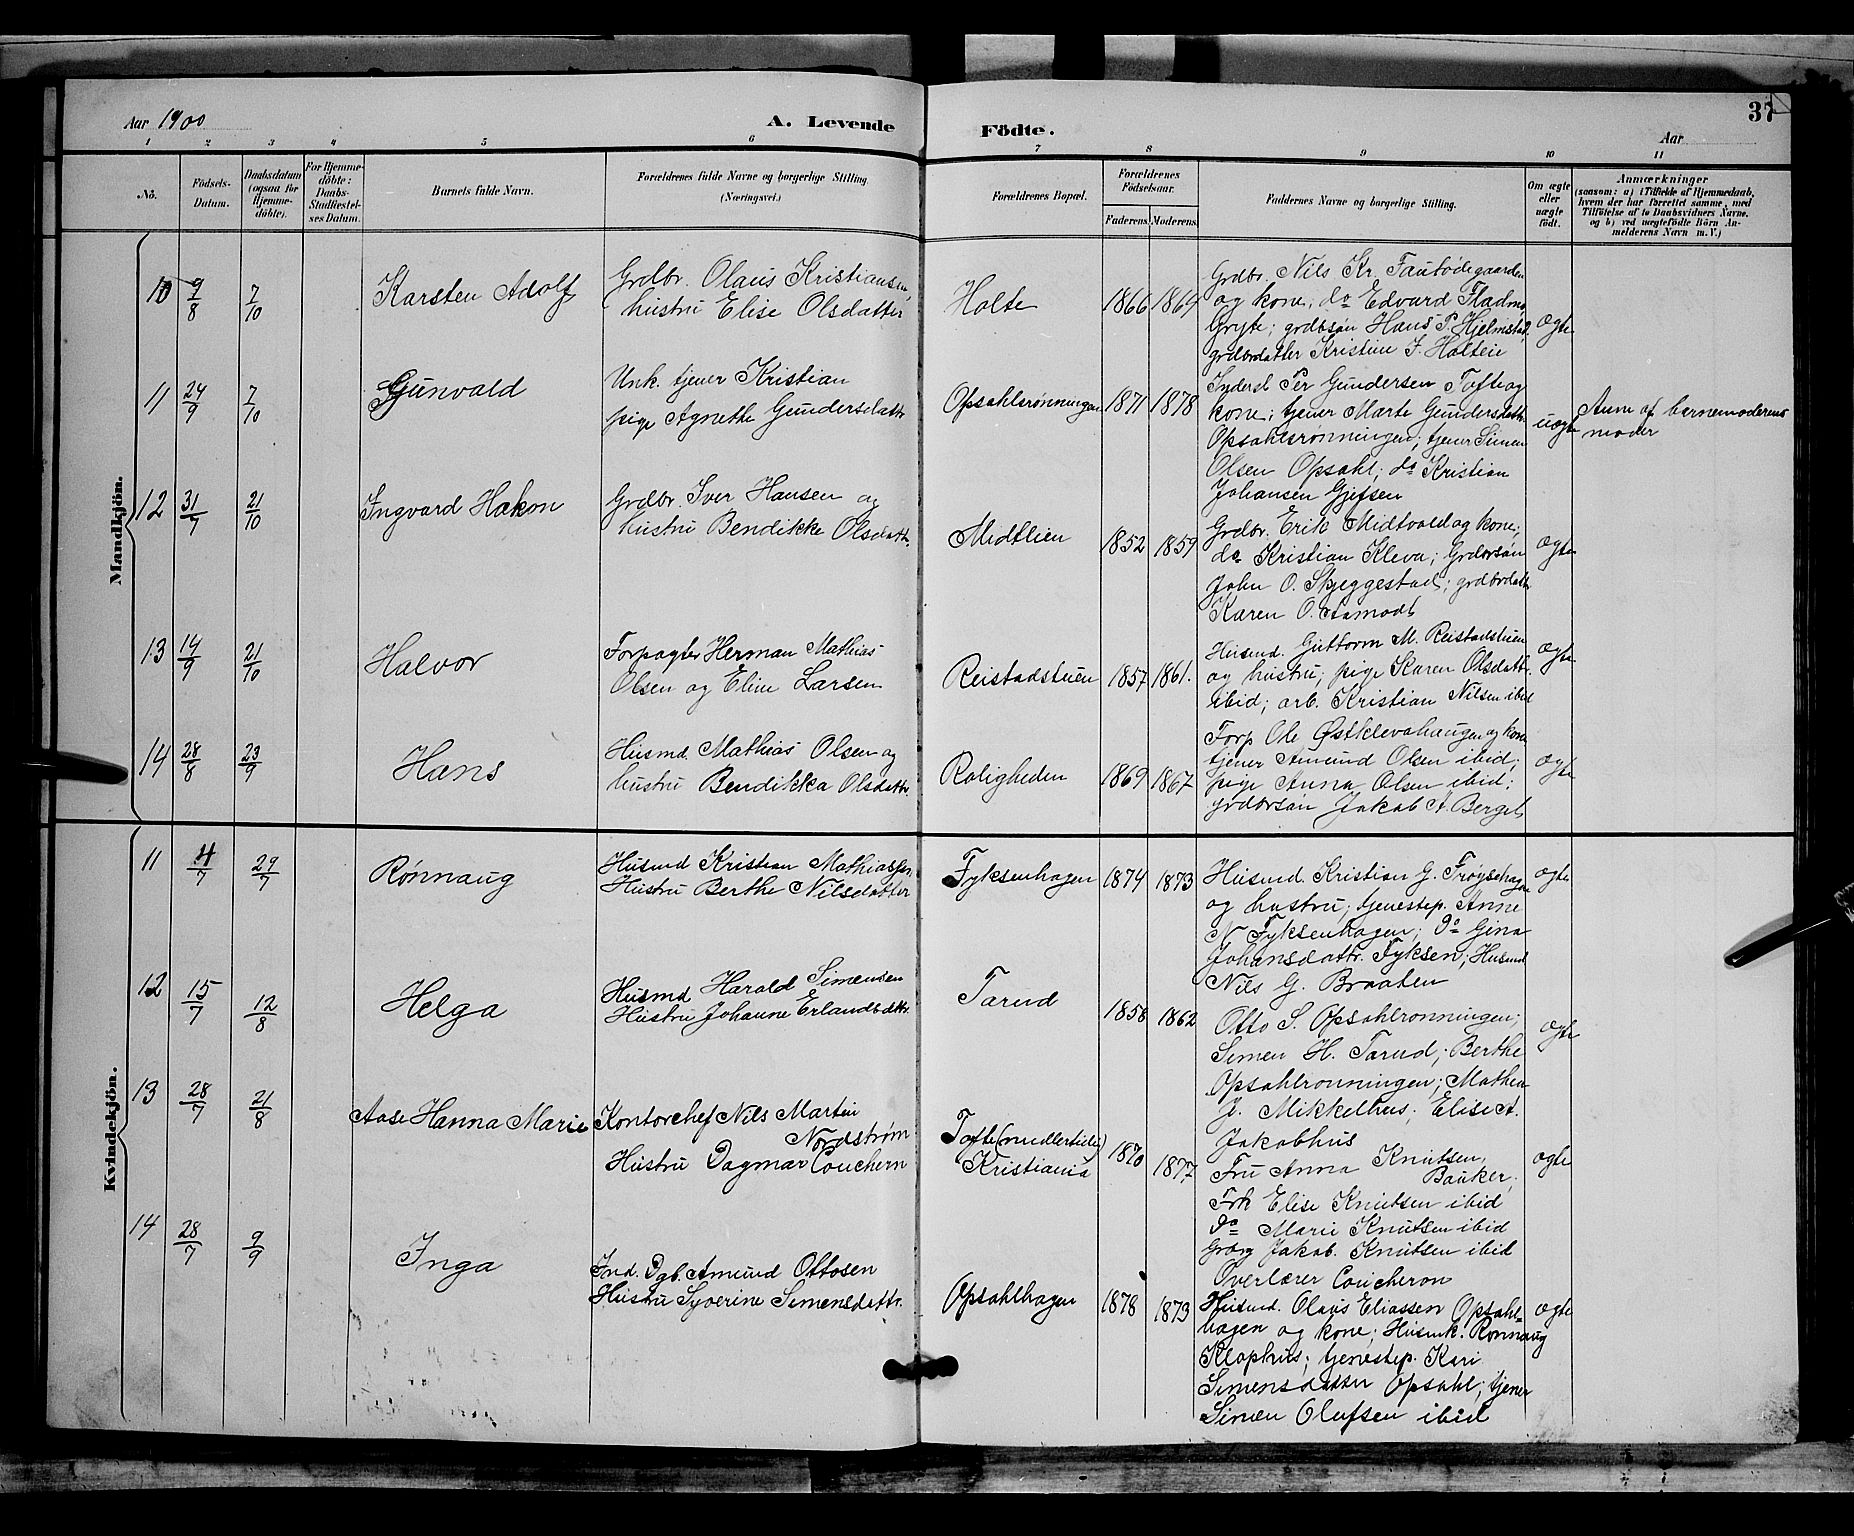 Aar 1900
A. Levende
Födte.
Aar
37
1 2 3 4 5 6 7 8 9 10 11
No.
Födsels-Datum.
Daabsdatum (ogsaa for Hjemme-döbte).
For Hjemme-döbte: Daabs-Stadfæstel-ses Datum.
Barnets fulde Navn.
Forældrenes fulde Navne og borgerlige Stilling. (Næringsvei.)
Forældrenes Bopæl.
Forældrenes Födselsaar.
Faderens. Moderens.
Faddernes Navne og borgerlige Stilling.
Om ægte eller uægte födt.
Anmærkninger
(saasom: a) i Tilfælde af Hjemmedaab, hvem der har forrettet samme, med Tilföielse af to Daabsvidners Navne, og b) ved uægtefödte Börn An-melderens Navn m. V.)
Mandkjön.
10 9/8 7/10 Karsten Adolf
Grdbr. Olaus Kristiansen,
hustru Elise Olsdatter
Holte 1866 1864
Grdbr. Nils Kr. Fautödegaarden
og kone; do Edvard Fladmo
Gryte; grdbsön Hans P. Hjelmstad,
grdbrdatter Kristine J. Holteie
ægte
11 24/9 7/10 Gunvald
Unk. tjener Kristian
pige Agnethe Gundersdattr
Opsahlsrønningen 1871 1878
Inderst Per Gundersen Tofte og
kone; tjener Marte Gundersdattr
Opsahlsrønningen; tjener Simen
Olsen Opsahl; do Kristian
Johansen Gjefsen
uægte
Anm af barnemoderens
moder
12 31/7 21/10 Ingvard Hakon
Grdbr. Iver Hansen og
hustru Bendikke Olsdattr.
Midtlien 1852 1859
Grdbr. Erik Midtvold og kone;
do Kristian Kleva; Grdbrsön
John O. Skjeggestad; grdbrdattr
Karen O. Aamodt
ægte
13 14/9 21/10 Halvor
Forpagter Herman Mathias
Olsen og Eline Larsen
Reistadstuen 1857 1861.
Husmd. Guttorm M. Reistadstuen
og hustru; pige Karen Olsdattr.
ibid; arb. Kristian Nilsen ibid
ægte
14 28/8 23/9 Hans
Husmd. Mathias Olsen og
hustru Bendikka Olsdattr.
Roligheden 1869 1867
Forp Ole Østklevahaugen og kone
tjener Amund Olsen ibid;
pige Anna Olsen ibid;
grdbrsön Jakob A. Berget
ægte
Kvindekjön.
11 4/7 29/7 Rønnaug
Husmd Kristian Mathiassen
Hustru Berthe Nilsdatter
Fyksenhagen 1874 1873
Husmd. Kristian G. Frøysehagen
og hustru; tjenestep. Anne
N Fyksenhagen; do Gina
Johansdattr. Fyksen; Husmd
Nils G. Braaten
ægte
12 15/7 12/8 Helga
Husmd Harald Simensen
Hustru Johanne Erlandsdttr.
Tarud 1858 1862
Otto S. Opsahlronningen;
Simen H. Tarud; Berthe
Opsahlronningen; Mathea
J. Mikkelhus; Elise A.
Jakobhus
ægte
13 28/7 21/8 Aase Hanna Marie
Kontorchef Nils Martin
Nordstrøm
Hustru Dagmar Couchern
Tofte (midlertidig)
Kristiania 1870 1877
Fru Anna Knutsen,
Banker;
Frk Elise Knutsen ibid
do Marie Knutsen ibid
Jakob Knutsen ibid
Overlærer Coucheron
ægte
14 28/7 9/9 Inga
Ind. Dgb. Amund Ottosen
Hustru Syverine Simensdattr.
Opsahlhagen 1878 1873
Husmd. Olaus Eliassen Opsahl-
hagen og kone; Husmk. Rønnaug
Klophus; tjenestep. Kari
Simensdatter Opsahl; tjener
Simen Olufsen ibid
ægte